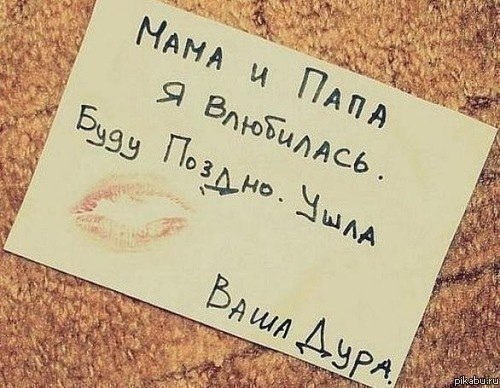 Мама и Папа
Я Влюбилась.
Буду Поздно. Ушла
Ваша Дура.
pikabu.ru